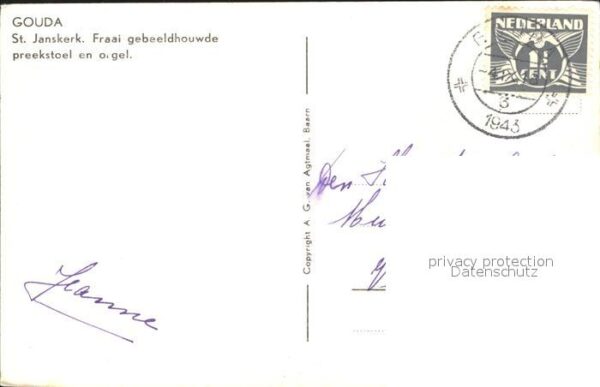 GOUDA
St. Janskerk. Fraai gebeeldhouwde
preekstoel en orgel.
NEDERLAND
1½
CENT
3
1943
Copyright A. G. van Agtmaal, Baarn
Den
privacy protection
Datenschutz
Jeanne